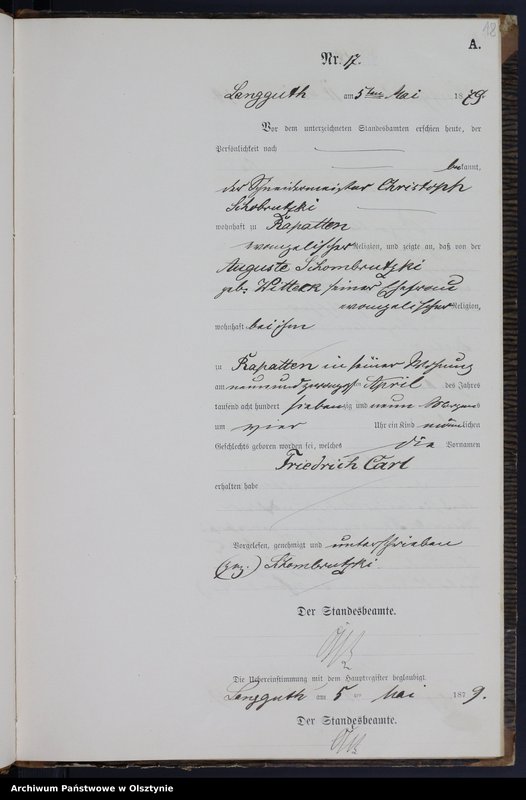 18
A.
Nr. 17.
Langguth am 5ten Mai 1879.
Vor dem unterzeichneten Standesbamten erschien heute, der
Persönlichkeit nach
bekannt,
der Schneidermeister Christoph
Schobrutzki
wohnhaft zu Rapatten
evangelischer Religion, und zeigte an, daß von der
Auguste Schombrutzki
geb. Witteck seiner Ehefrau
evangelischer Religion,
wohnhaft bei ihm
zu Rapatten in seiner Wohnung
am neunundzwanzigsten April des Jahres
tausend acht hundert siebenzig und neun Morgens
um vier Uhr ein Kind männlichen
Geschlechts geboren worden sei, welches die Vornamen
Friedrich Carl
erhalten habe
Vorgelesen, genehmigt und unterschrieben
(gez.) Schombrutzki
Der Standesbeamte.
Die Uebereinstimmung mit dem Hauptregister beglaubigt
Langguth am 5 ten Mai 1879.
Der Standesbeamte.
Archiwum Państwowe w Olsztynie